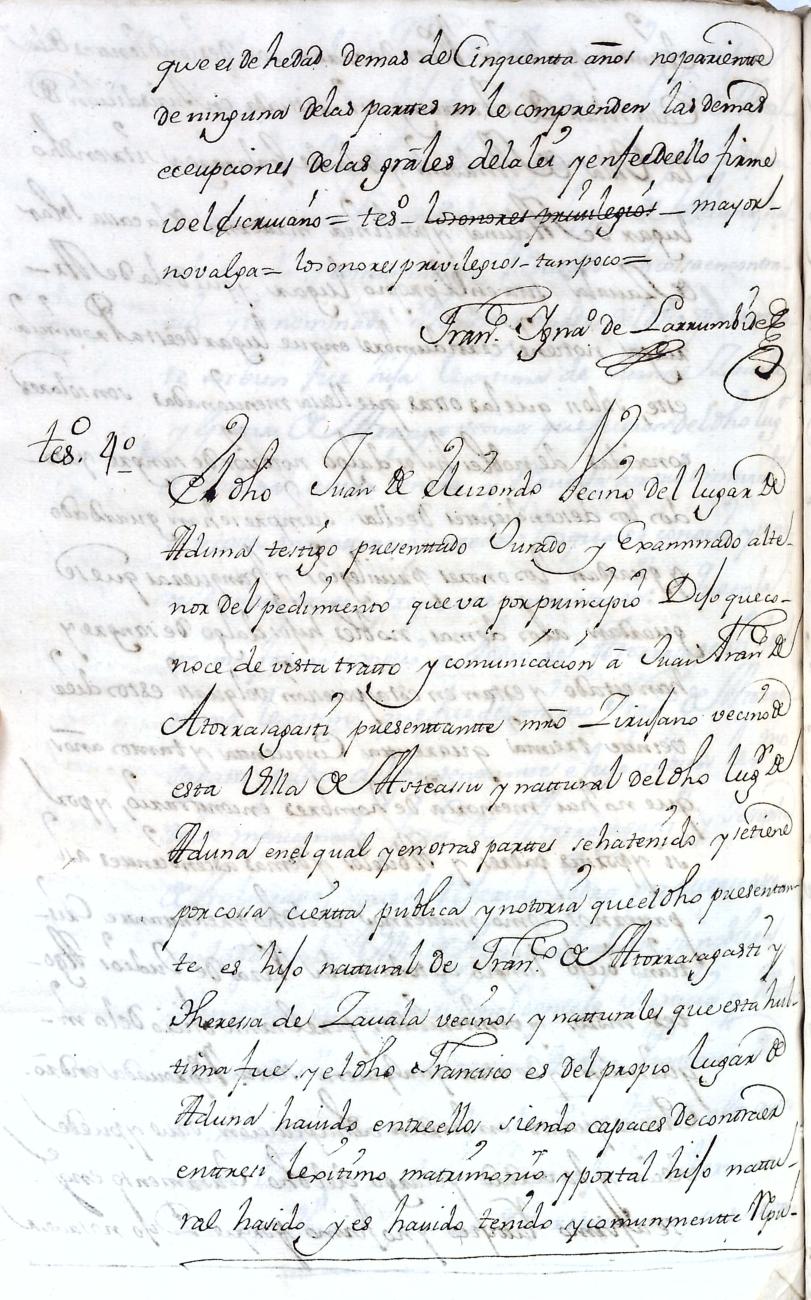 que es de hedad demas de Cinquentta años no parientte
de ninguna delas parttes ni le comprenden las demas
ecepciones delas grâles dela leî y enfee deello firme
io el Escrivano = tesº - losonores privilegios - mayor -
novalga = losonores privilegios - tampoco =
Franco. Ignaº de Larrumbide
tesº. 4º
El dho Juan de Elizondo vecino del lugar de
Aduna testigo presenttado Jurado y Examinado alte-
nor del pedimiento que va por principio Dijo que co-
noce de vista tratto y comunicacion â Juan Franco de
Atorrasagasti presenttantte mrô Zirujano vecino de
esta Villa de Asteassu y nattural del dho lugr de
Aduna enel qual y en otras parttes sehatenido y setiene
por cossa ciertta publica y notoria que el dho presentan-
te es hijo nattural de Franco. de Atorrasagasti y
Theresa de Zavala vecinos y natturales que esta hul-
tima fue y el dho Francisco es del propio lugar de
Aduna havido entreellos siendo capaces de contraer
enttresi lexitimo matrimonio y portal hijo nattu-
ral hasido y es havido tenido y comunmentte Repu-